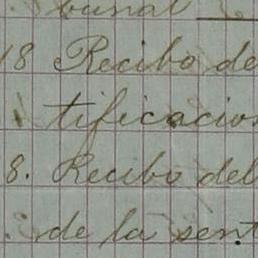 bunal
18 Recibo de
tificacion
8. Recibo del
de la sent